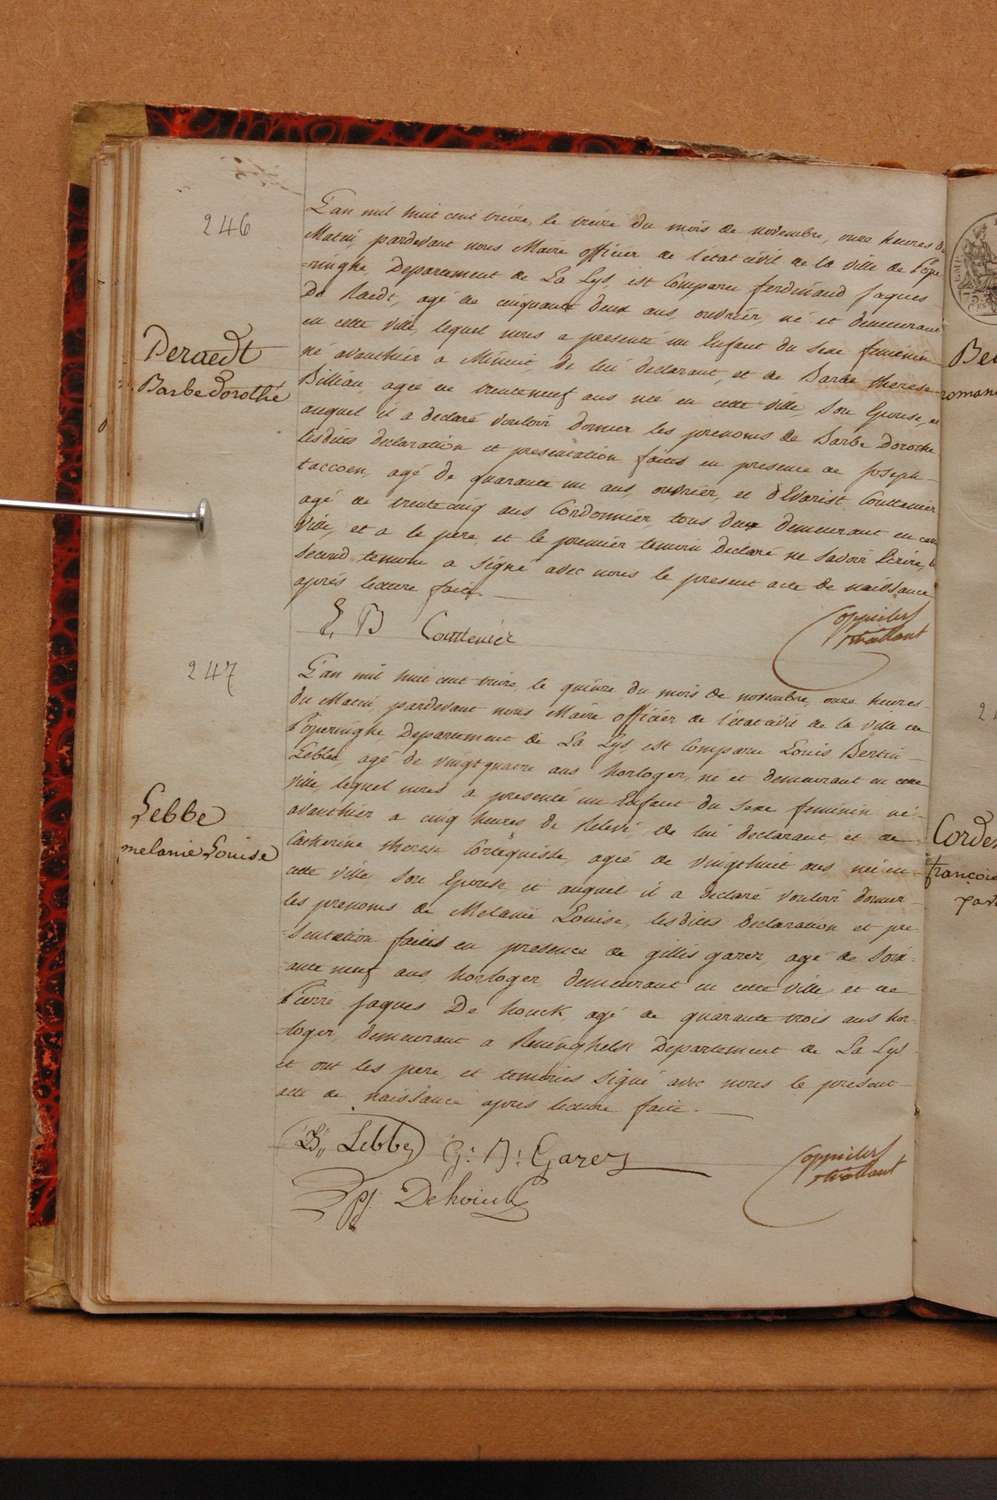 246
Deraedt
Barbe Dorothé
L'an mil huit cent treize, le treize du mois de novembre, onze heures du
Matin, pardevant nous Maire officier de l'état civil de la ville de Pope
=ringhe, Departement de La Lys, est Comparu ferdinand Jaques
De Raedt, agé de cinquante deux ans, ouvrier, né et demeurant
en cette ville, lequel nous a presenté un Enfant du sexe feminin
né avanthier a Minuit de lui declarant, et de Barbe therese
Billiau, agée de trenteneuf ans née en cette ville Son Epouse, et
auquel il a declaré vouloir donner les prenoms de Barbe Dorothé
lesdites declaration et presentation faites en presence de Joseph
taccoen, agé de quarante un ans, ouvrier, et d'Evarist Couttenier
agé de trente cinq ans Cordonnier, tous deux demeurant en cette
Ville, et a le pere, et le premier temoin declaré ne Savoir Ecrire, le
second temoin a signé avec nous le present acte de naissance
après lecture faite.
E, B Couttenier
247
Lebbe
melanie Louise
L'an mil huit cent treize, le quinze du mois de novembre, onze heures
du Matin, pardevant nous Maire officier de l'état civil de la ville de
Poperinghe Departement de La Lys, est Comparu Louis Bertin
Lebbe, agé de vingtquatre ans horloger, né et demeurant en cette
ville, lequel nous a presenté un Enfant du sexe feminin né
avanthier a cinq heures de Relevé de lui declarant, et de
Catherine therese Cortequisse, agée de vingthuit ans née en
cette ville Son Epouse et auquel il a declaré vouloir donner
les prenoms de Melanie Louise, lesdites declaration et pre
sentation faites en presence de gillis garez, agé de Soix
ante neuf ans, horloger, demeurant en cette ville, et de
Pierre Jaques De houck, agé de quarante trois ans hor
loger, demeurant a Reninghelst Departement de La Lys
et ont les pere, et temoins signé avec nous le present
acte de naissance après lecture faite.
LB,, Lebbe G: D: Garez
Pj. Dehouck
Cordes
françois